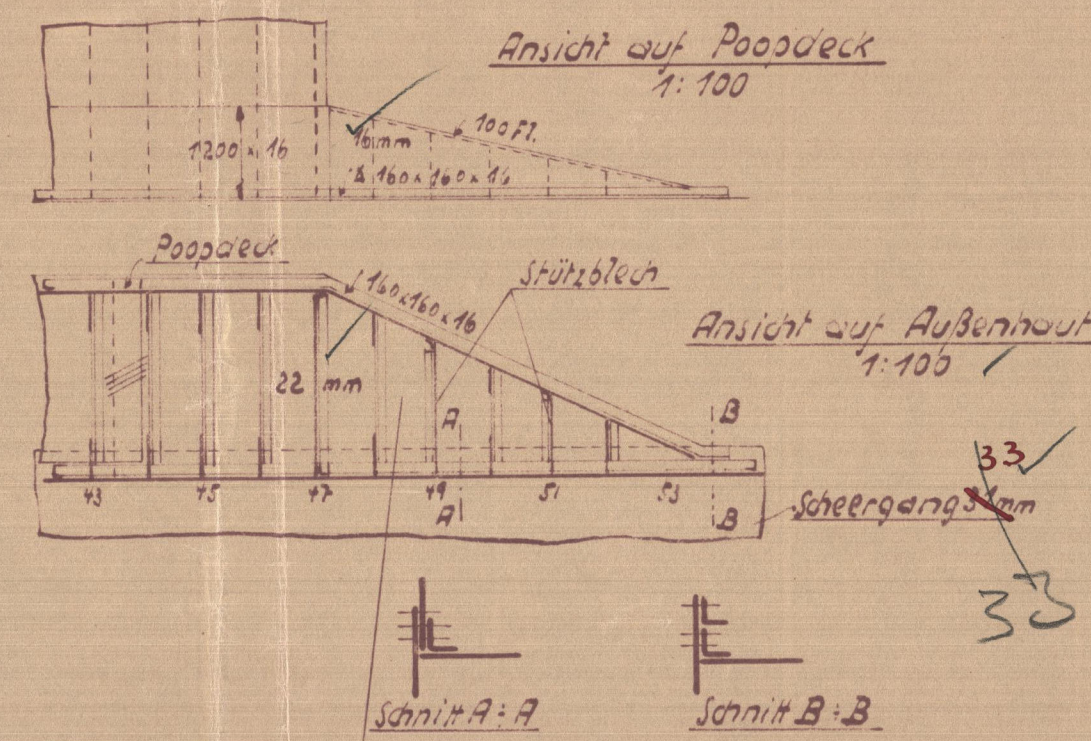 Ansicht auf Poopdeck
1:100
16mm
100 Fl.
1200 × 16
160 × 160 × 16
Poopdeck
160×160×16
Stützblech
Ansicht auf Außenhaut
1:100
22 mm
A
B
33
43 45 47 49 51 53
A
B
Scheergang 31mm
33
Schnitt A÷A
Schnitt B÷B